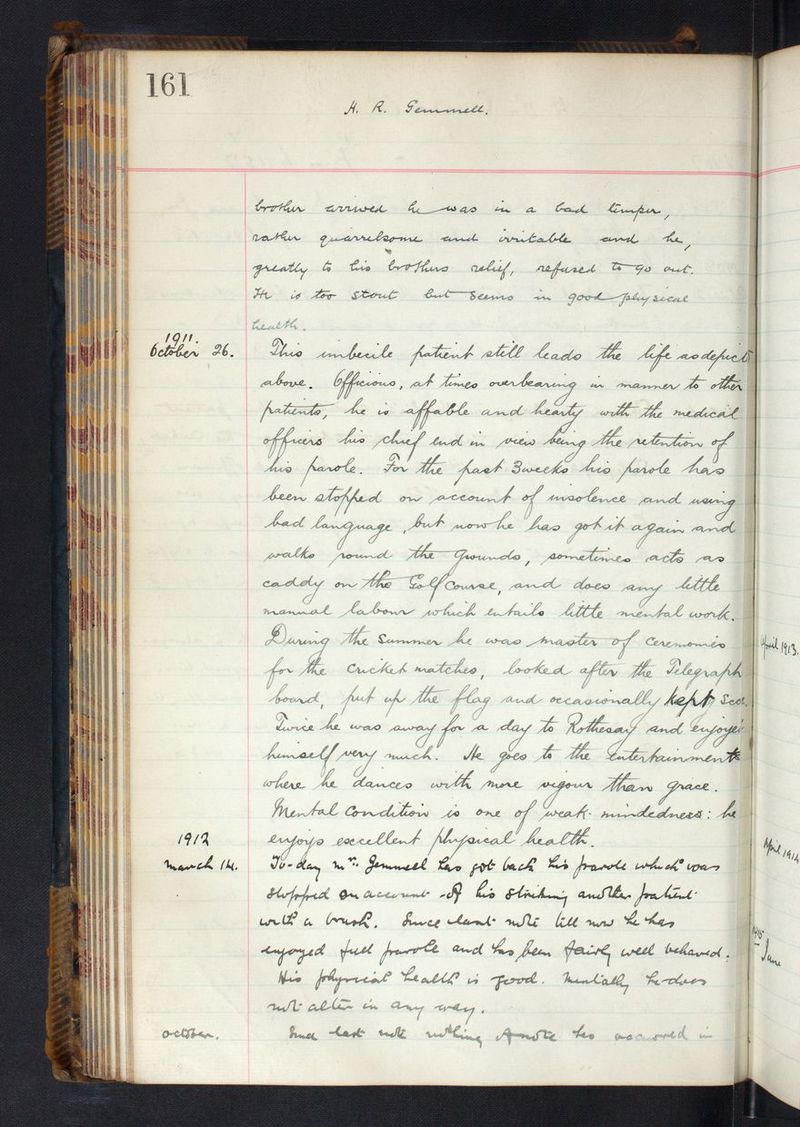 161
H. R. Gemmell.
brother arrived he was in a bad temper,
rather quarrelsome and irritable and he,
greatly to his brothers relief, refused to go out.
He is too stout but seems in good physical
health.
1911.
October 26. This imbecile patient still leads the life as depict
above. Officious, at times overbearing in manner to other
patients, he is affable and hearty with the medical
officers his chief end in view being the retention of
his parole. For the past 3 weeks his parole has
been stopped on account of insolence and using
bad language, but now he has got it again and
walks round the grounds, sometimes acts as
caddy on the Golf Course, and does any little
manual labour which entails little mental work.
During the summer he was master of ceremonies
for the cricket matches, looked after the Telegraph
board, put up the flag and occasionally kept
Twice he was away for a day to Rothesay and enjoyed
himself very much. He goes to the entertainments
where he dances with more vigour than grace.
Mental condition is one of weak-mindedness: he
enjoys excellent physical health.
1912
March 14. To-day Mr. Gemmell has got back his parole which was
stopped on account of his striking another patient
with a brush. Since last note till now he has
enjoyed full parole and has been fairly well behaved.
His physical health is good. Mentally he does
not alter in any way.
October. Since last note nothing of note has occurred in
April 1913.
April 1914
June